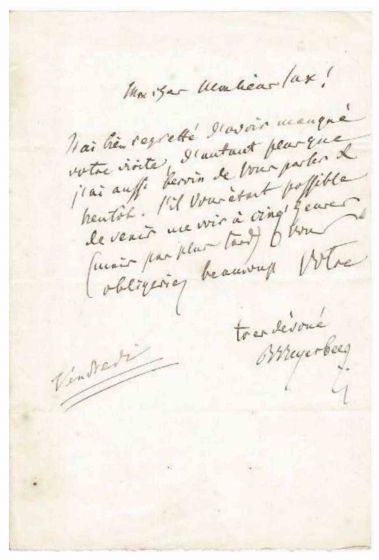 Mon cher Monsieur Sax!
J'ai bien regretté d'avoir manqué
votre visite, d'autant plus que
j'ai aussi besoin de vous parler
bientôt. S'il vous était possible
de venir me voir à cinq heures
(mais pas plus tard) Vous
obligeriez beaucoup Votre
très dévoué
Meyerbeer
Vendredi